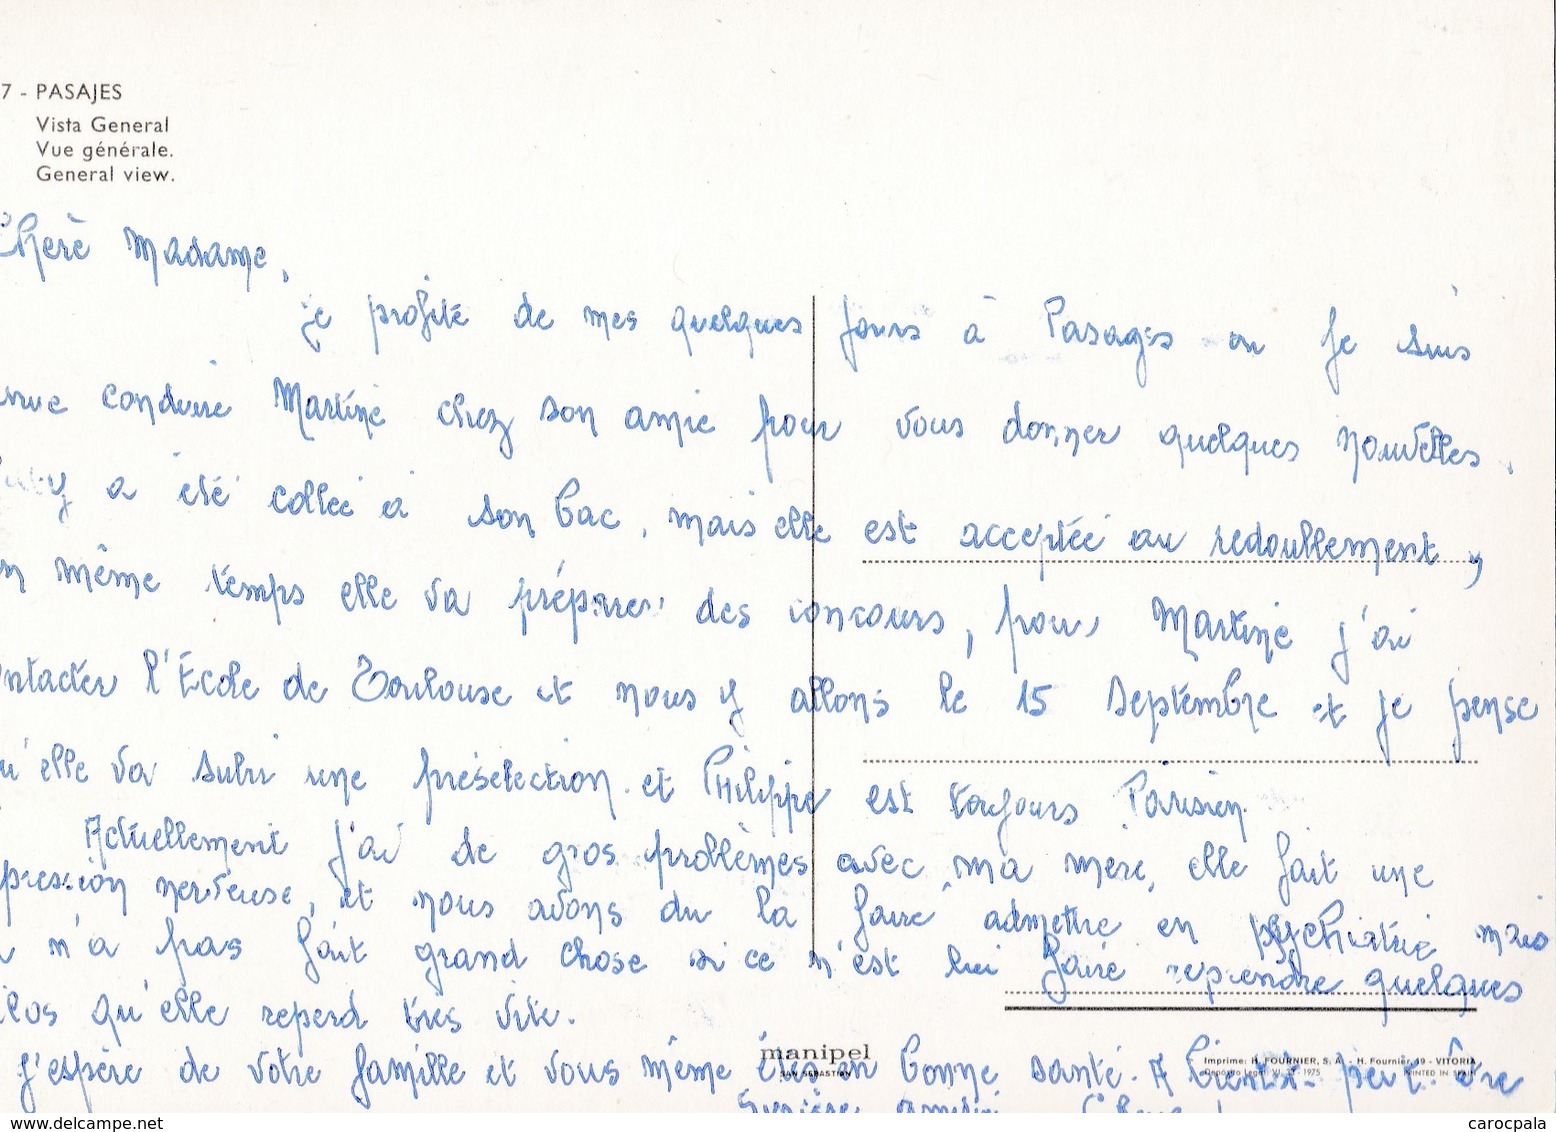 7 - PASAJES
Vista General
Vue générale.
General view.
Chère Madame,
je profite de mes quelques jours à Pasages ou je suis
conduire Martine chez son amie pour vous donner quelques nouvelles.
a été collée à son bac, mais elle est acceptée au redoublement,
même temps elle va préparer des concours, pour Martine j'ai
ntacter l'École de Toulouse et nous y allons le 15 septembre et je pense
u'elle va subir une présélection et Philippe est toujours Parisien
Actuellement j'ai de gros problèmes avec ma mère, elle fait une
pression nerveuse, et nous avons du la faire admettre en psychiatrie mais
n'a pas fait grand chose si ce n'est lui faire reprendre quelques
ilos qu'elle reperd très vite.
J'espère de votre famille et vous même êtes en bonne santé. A bientôt peut-être
manipel
SAN SEBASTIAN
Imprime: H. FOURNIER, S. A. - H. Fournier, 19 - VITORIA
Depósito Legal: VI. - 1975 PRINTED IN SPAIN
www.delcampe.net
carocpala